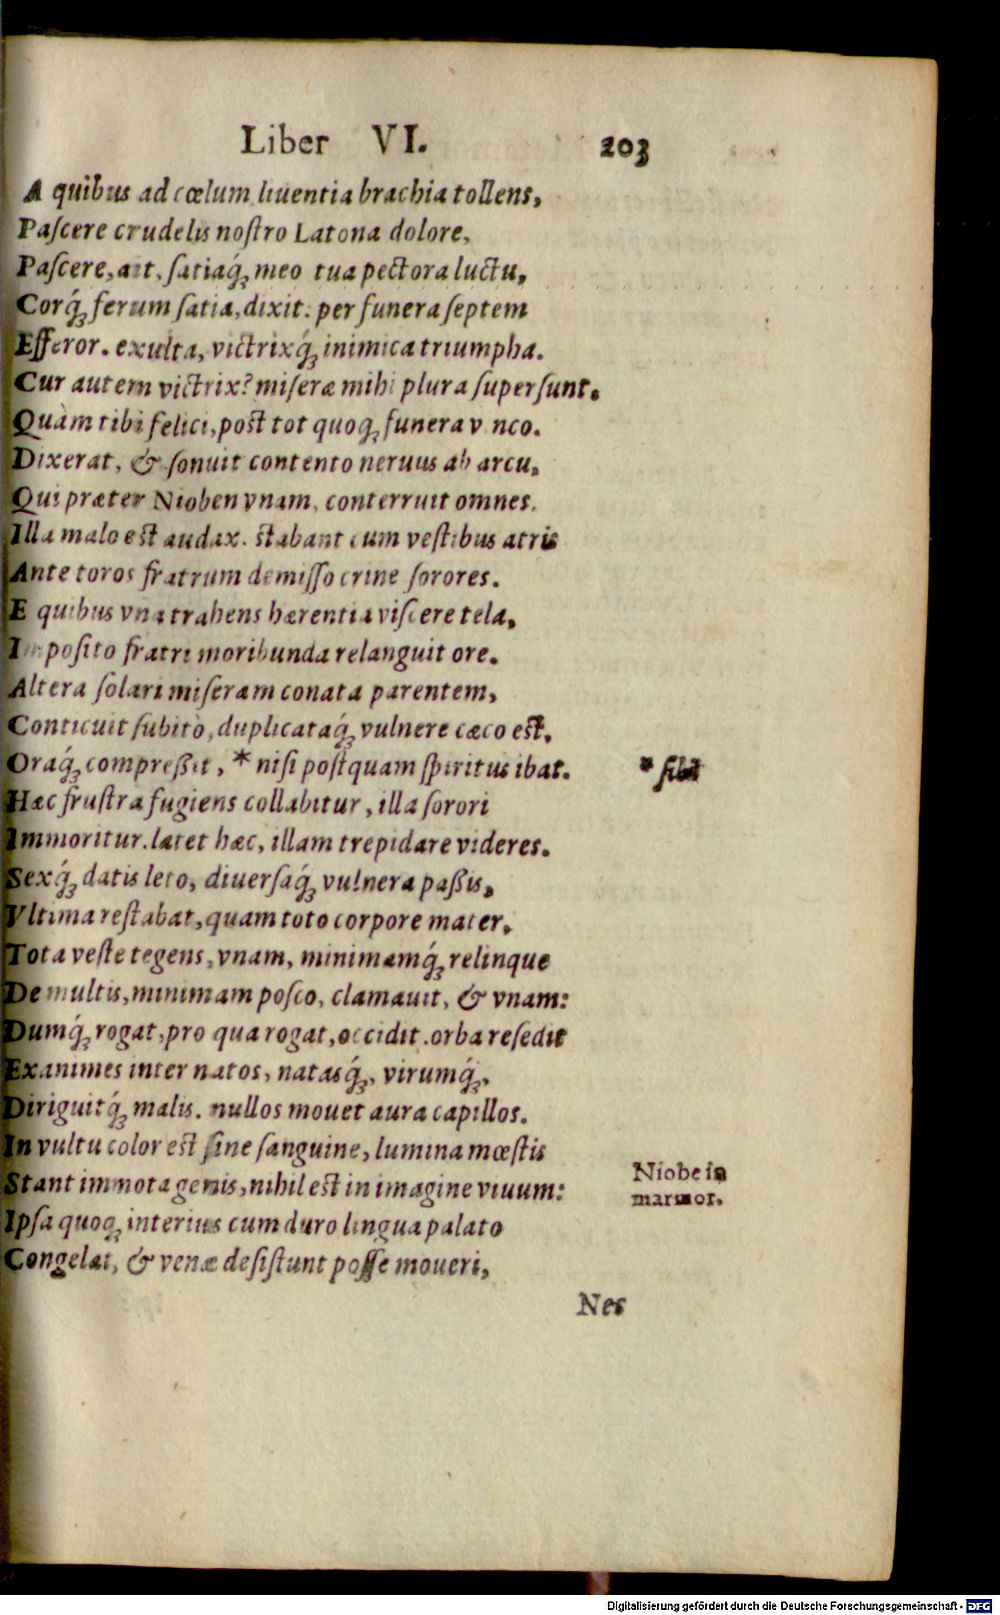 Liber VI. 203
A quibus ad cœlum liuentia brachia tollens,
Paſcere crudelis noſtro Latona dolore,
Paſcere, ait, ſatiaq́ꝫ meo tua pectora luctu,
Corq́ꝫ ferum ſatia, dixit: per funera ſeptem
Efferor. exulta, victrixq́ꝫ inimica triumpha.
Cur autem victrix? miſeræ mihi plura ſuperſunt.
Quàm tibi felici, post tot quoqꝫ funera vnco.
Dixerat, & ſonuit contento neruus ab arcu,
Qui præter Nioben vnam, conterruit omnes.
Illa malo est audax. stabant cum veſtibus atris
Ante toros fratrum demiſſo crine ſorores.
E quibus vna trahens hærentia viſcere tela,
Impoſito fratri moribunda relanguit ore.
Altera ſolari miſeram conata parentem,
Conticuit ſubitò, duplicataq́ꝫ vulnere cæco est,
Oraq́ꝫ compreßit, * niſi poſtquam ſpiritus ibat.
* ſibi
Hæc fruſtra fugiens collabitur, illa ſorori
Immoritur. latet hæc, illam trepidare videres.
Sexq́ꝫ datis leto, diuerſaq́ꝫ vulnera paßis,
Vltima reſtabat, quam toto corpore mater,
Tota veſte tegens, vnam, minimamq́ꝫ relinque
De multis, minimam poſco, clamauit, & vnam:
Dumq́ꝫ rogat, pro qua rogat, occidit. orba reſedit
Exanimes inter natos, natasq́ꝫ, virumq́ꝫ,
Diriguitq́ꝫ malis. nullos mouet aura capillos.
In vultu color est ſine ſanguine, lumina mœſtis
Stant immota genis, nihil est in imagine viuum:
Niobe in
marmor.
Ipſa quoqꝫ interius cum duro lingua palato
Congelat, & venæ deſiſtunt poſſe moueri,
Nec
Digitalisierung gefördert durch die Deutsche Forschungsgemeinschaft - DFG